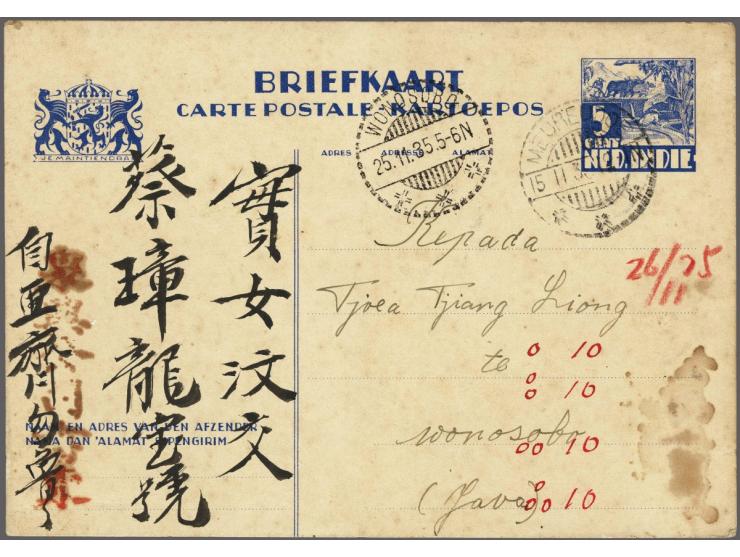 BRIEFKAART
CARTE POSTALE KARTOEPOS
JE MAINTIENDRAI
ADRES ADRESSE ALAMAT
WONOSOBO
25.11.35.5-6N
5
CENT
NED.INDIE
15 11 3
26/11 35
Kepada
Tjoea Tjiang Liong
te
wonosobo
(Java)
0 10
0
0 10
00 10
0
00 10
NAAM EN ADRES VAN DEN AFZENDER
NAMA DAN 'ALAMAT SI PENGIRIM
寶女汶交
蔡璋龍宝號
自亚齊